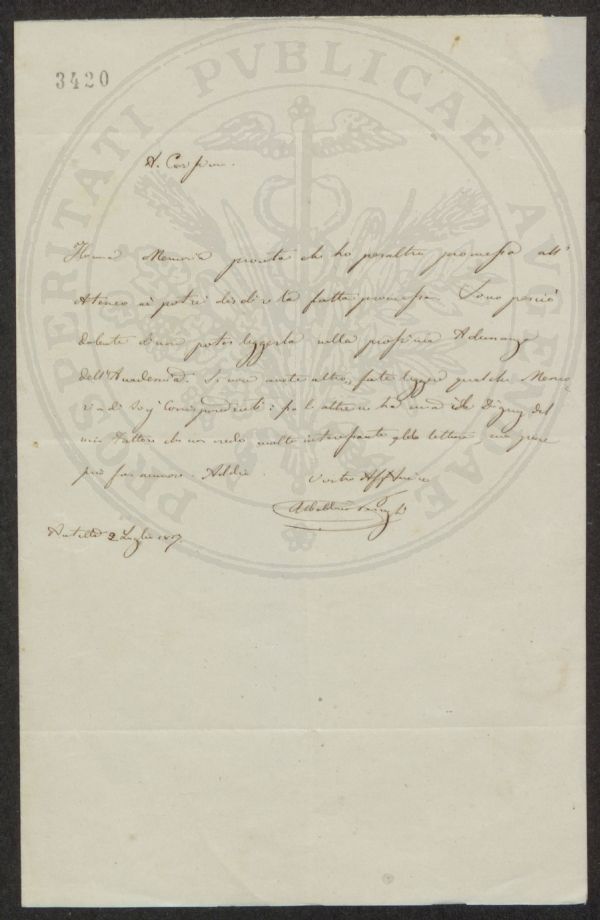 3420
PROSPERITATI PVBLICAE AVGENDAE
A. C.
Memoria pronta che ho peraltro promessa all'
Ateneo ai potrei disdire la fatta promessa. Sono perciò
dolente di non poter leggerla nella prossima Adunanza
dell'Accademia. Se non avete altro, fate leggere qualche Memo
ria di Soci Corrispondenti: fra l'altre ne ha una del
mio Fattore che non credo molto interessante alla lettura ma pure
può far numero. Addio. Vostro Aff Amico
2 Luglio